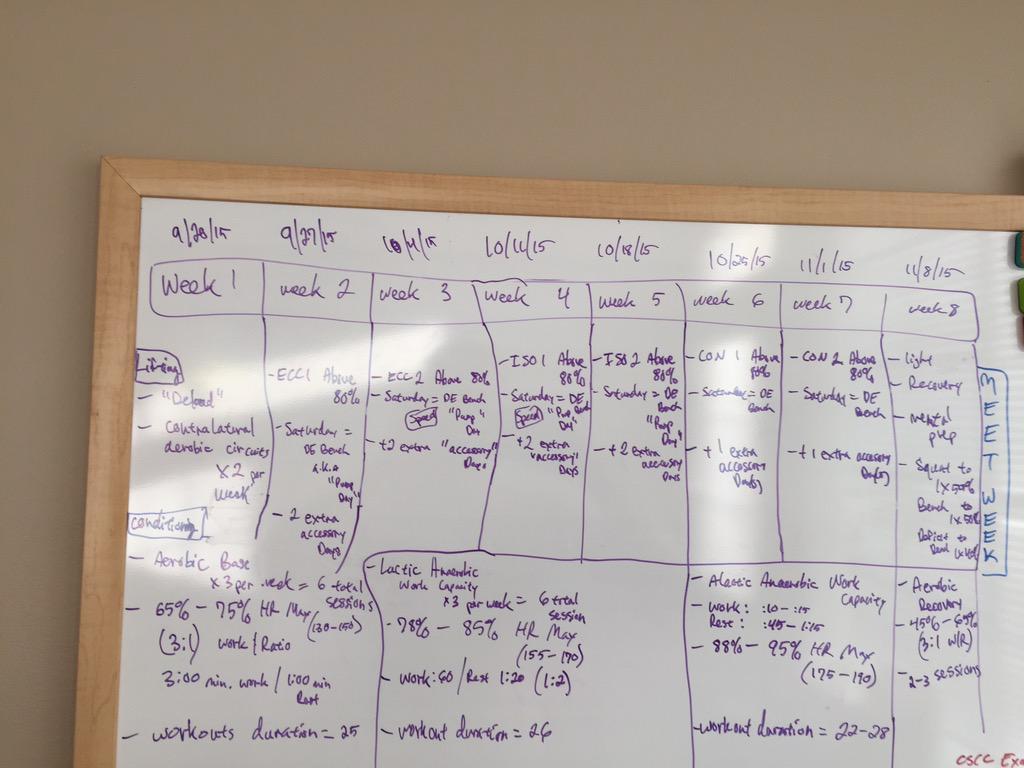 9/28/15 9/27/15 10/4/15 10/11/15 10/18/15 10/25/15 11/1/15 11/8/15
Week 1 week 2 week 3 week 4 week 5 week 6 week 7 week 8
Lifting
- "Deload"
- contralatural
aerobic circuits
x2 per
week
- ECC1 Above
80%
- Saturday =
DE Bench
a.k.a
"Pump
Day"
- 2 extra
accessory
Days
- ECC 2 Above 80%
- Saturday = DE Bench
Speed "Pump"
Day
- +2 extra "accessory"
Days
- ISO 1 Above
80%
- Saturday = DE
Speed "Pump Bench
Day"
- +2 extra
"accessory"
Days
- ISO 2 Above
80%
- Saturday = DE
Bench
"Pump
Day"
- +2 extra
accessory
Days
- CON 1 Above
80%
- Saturday = DE
Bench
- +1 extra
accessory
Day(s)
- CON 2 Above
80%
- Saturday = DE
Bench
- +1 extra accessory
Day(s)
- light
- Recovery
- mental
prep
- Squat to
1x50%
Bench to
1x50%
to
MEET WEEK
Conditioning
- Aerobic Base
x3 per week = 6 total
sessions
- 65% - 75% HR Max
(130-150)
(3:1) work/Ratio
3:00 min. work / 1:00 min
Rest
- workouts duration = 25
- Lactic Anaerobic
Work Capacity
x3 per week = 6 total
session
- 78% - 85% HR Max
(155-170)
- Work: 60 / Rest 1:20 (1:2)
- workout duration = 26
- Alactic Anaerobic Work
Capacity
- Work: :10 - :15
Rest: :45 - 1:15
- 88% - 95% HR Max
(175-190)
- workout duration = 22-28
- Aerobic
Recovery
- 45% - 65%
(3:1 W/R)
- 2-3 sessions
CSCC Exa